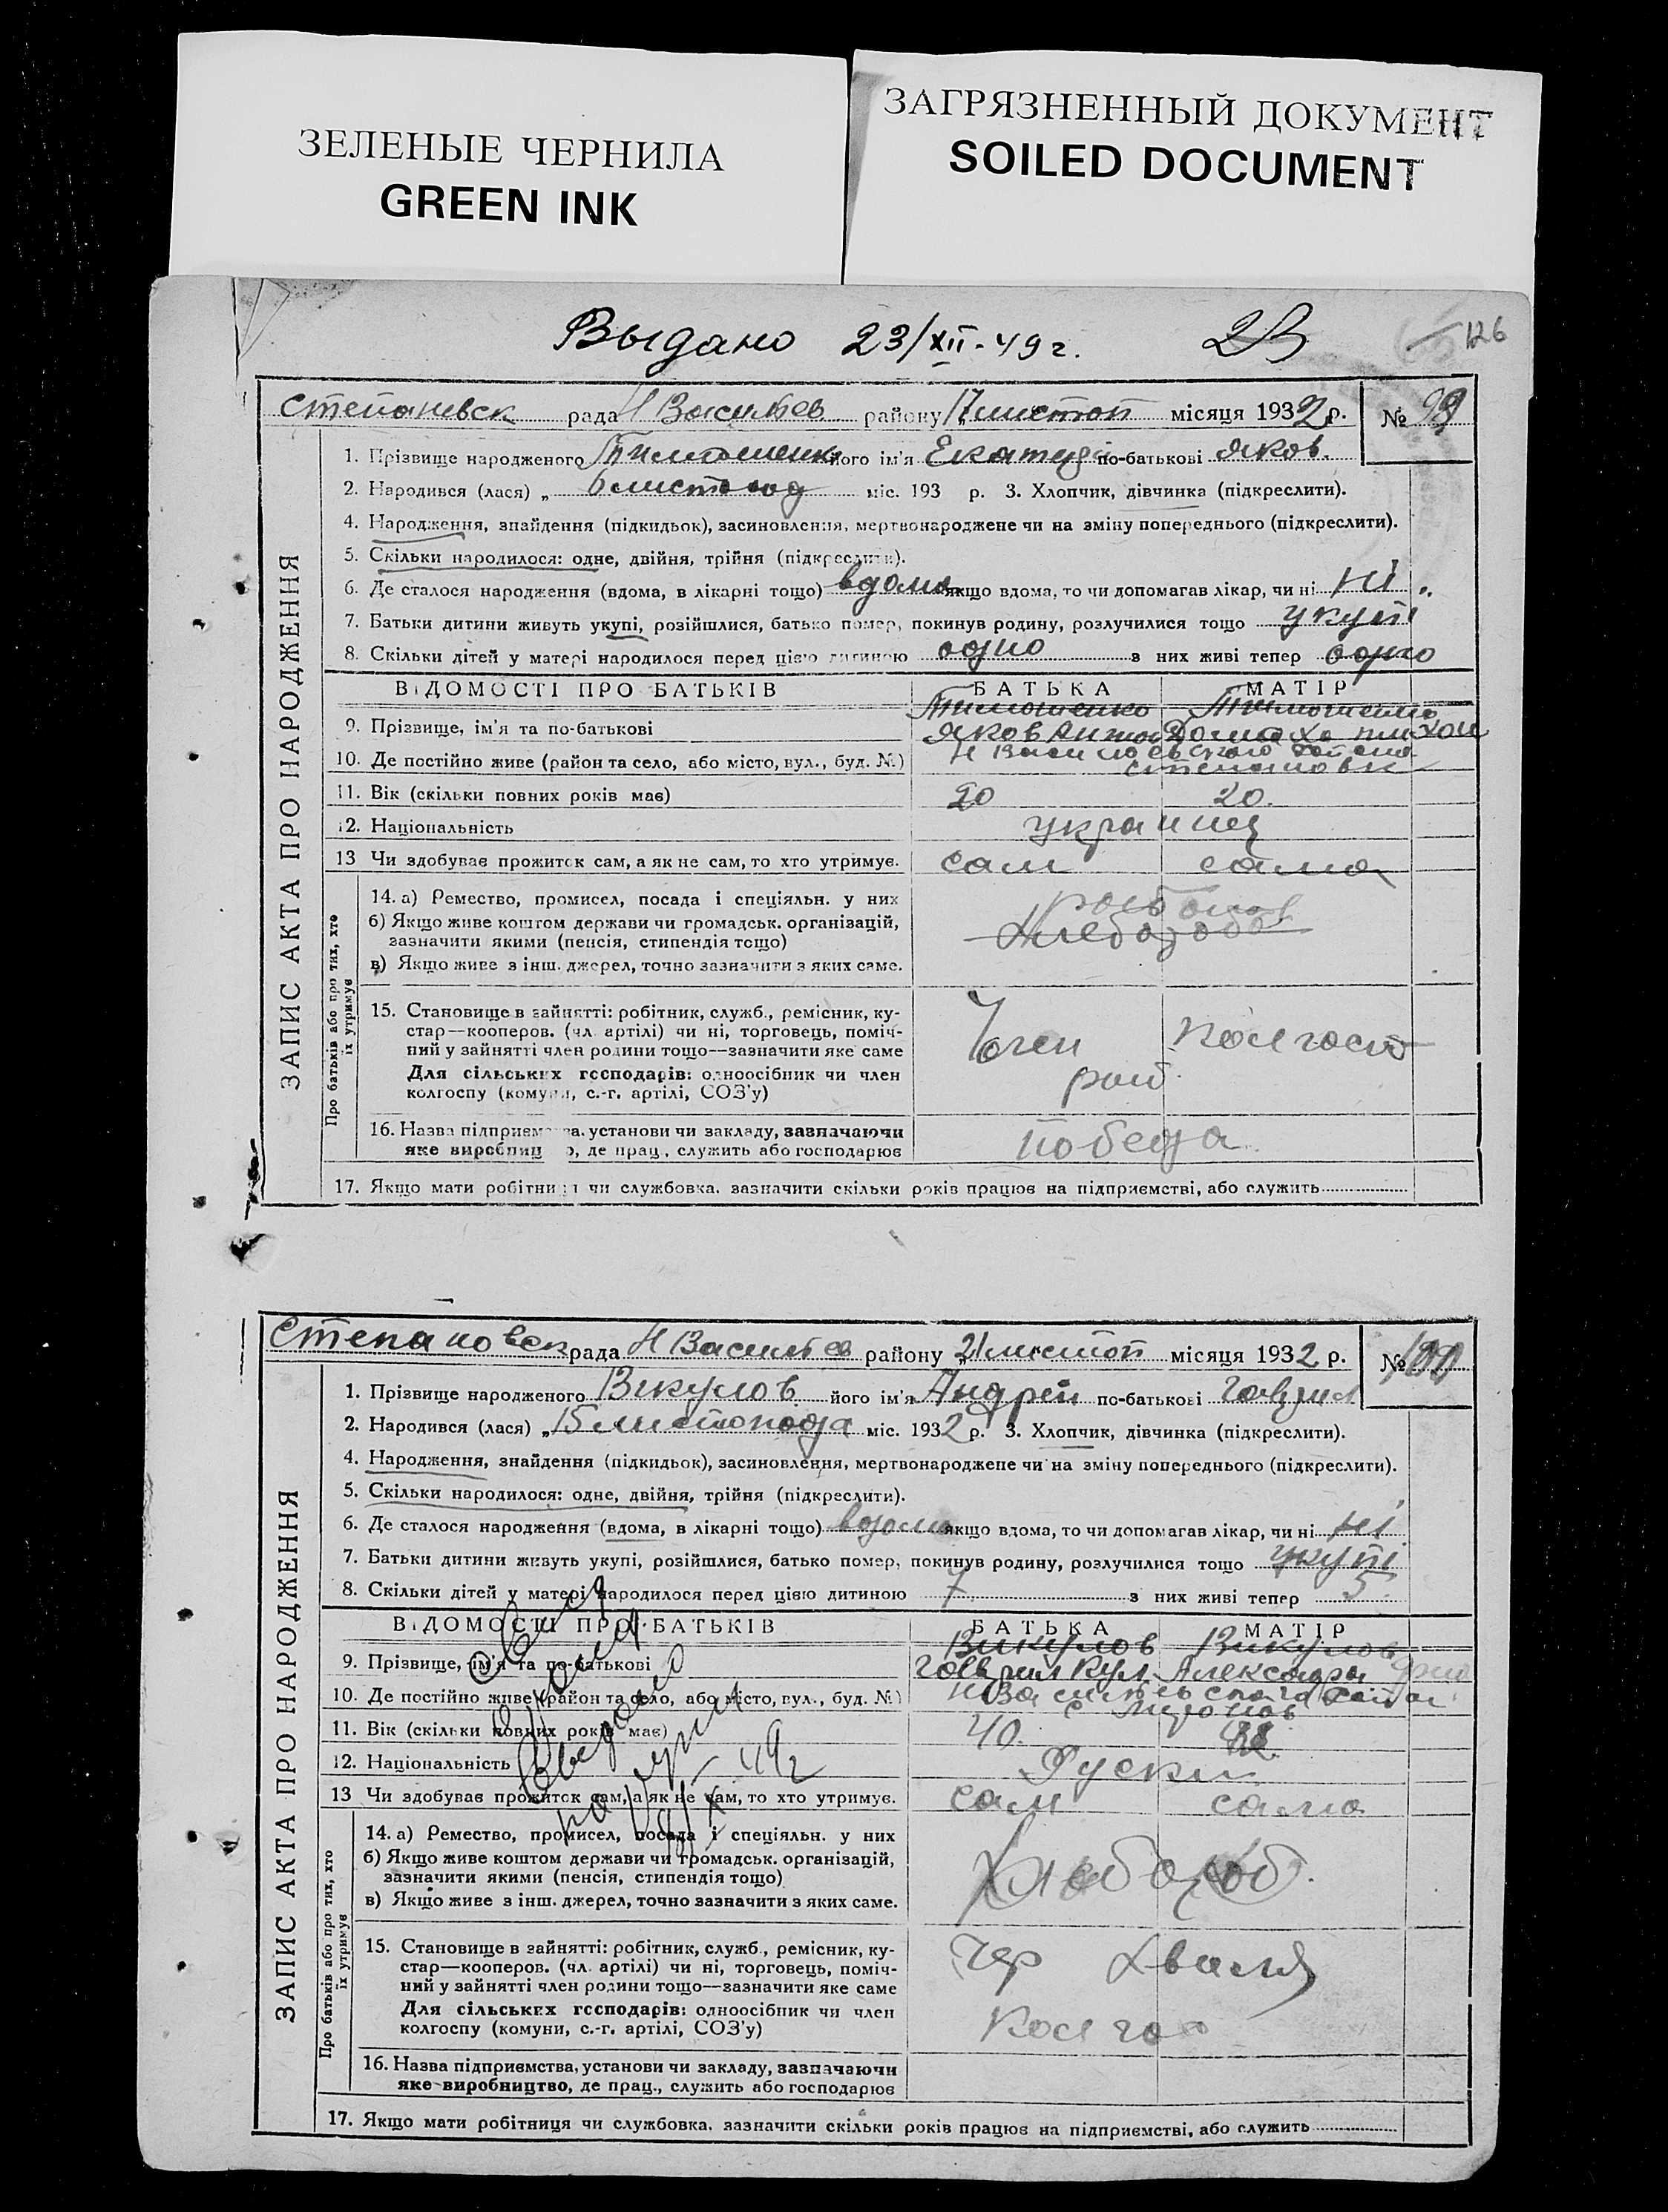 ЗЕЛЕНЫЕ ЧЕРНИЛА
GREEN INK
ЗАГРЯЗНЕННЫЙ ДОКУМЕНТ
SOILED DOCUMENT
Выдано 23/XII-49г.
126
Степаневск рада Н Васильев району 17 листоп місяця 1932 р. № 99
ЗАПИС АКТА ПРО НАРОДЖЕННЯ
1. Прізвище народженого Тимошенко його ім'я Екатер по-батькові Яков.
2. Народився (лася) „ 6 листопад міс. 193 р. 3. Хлопчик, дівчинка (підкреслити).
4. Народження, знайдення (підкидьок), засиновлення, мертвонароджене чи на зміну попереднього (підкреслити).
5. Скільки народилося: одне, двійня, трійня (підкреслити).
6. Де сталося народження (вдома, в лікарні тощо) вдома якщо вдома, то чи допомагав лікар, чи ні ні
7. Батьки дитини живуть укупі, розійшлися, батько помер, покинув родину, розлучилися тощо укупі
8. Скільки дітей у матері народилося перед цією дитиною одно з них живі тепер одно
ВІДОМОСТІ ПРО БАТЬКІВ БАТЬКА МАТІР
Тимошенко Тимошенко
9. Прізвище, ім'я та по-батькові Яков Антон Домаха
10. Де постійно живе (район та село, або місто, вул., буд. №) Н Васильевского
11. Вік (скільки повних років має) 20 20.
12. Національність украинц
13 Чи здобуває прожиток сам, а як не сам, то хто утримує. сам сама
Про батьків або про тих, хто їх утримує
14. а) Ремество, промисел, посада і спеціяльн. у них
б) Якщо живе коштом держави чи громадськ. організацій, зазначити якими (пенсія, стипендія тощо) Хлебороб
в) Якщо живе з інш. джерел, точно зазначити з яких саме.
15. Становище в зайнятті: робітник, служб., ремісник, ку-
стар—кооперов. (чл. артілі) чи ні, торговець, поміч-
ний у зайнятті член родини тощо—зазначити яке саме Член колгосп
Для сільських господарів: одноосібник чи член
колгоспу (комуни, с.-г. артілі, СОЗ'у)
16. Назва підприємства, установи чи закладу, зазначаючи
яке виробництво, де прац., служить або господарює победа
17. Якщо мати робітниця чи службовка, зазначити скільки років працює на підприємстві, або служить
Степановск рада Н Васильев району 21 листоп місяця 1932 р. № 100
ЗАПИС АКТА ПРО НАРОДЖЕННЯ
1. Прізвище народженого Викулов його ім'я Андрей по-батькові Гаврил
2. Народився (лася) „ 15 листопода міс. 1932 р. 3. Хлопчик, дівчинка (підкреслити).
4. Народження, знайдення (підкидьок), засиновлення, мертвонароджене чи на зміну попереднього (підкреслити).
5. Скільки народилося: одне, двійня, трійня (підкреслити).
6. Де сталося народження (вдома, в лікарні тощо) вдома якщо вдома, то чи допомагав лікар, чи ні ні
7. Батьки дитини живуть укупі, розійшлися, батько помер, покинув родину, розлучилися тощо укупі
8. Скільки дітей у матері народилося перед цією дитиною 7 з них живі тепер 5
ВІДОМОСТІ ПРО БАТЬКІВ БАТЬКА МАТІР
Викулов Викулов
9. Прізвище, ім'я та по-батькові Гаврил Александра
10. Де постійно живе (район та село, або місто, вул., буд. №)
11. Вік (скільки повних років має) 40.
12. Національність Руски
13 Чи здобуває прожиток сам, а як не сам, то хто утримує. сам сама
49г
Про батьків або про тих, хто їх утримує
14. а) Ремество, промисел, посада і спеціяльн. у них
б) Якщо живе коштом держави чи громадськ. організацій, зазначити якими (пенсія, стипендія тощо) Хлебороб.
в) Якщо живе з інш. джерел, точно зазначити з яких саме.
15. Становище в зайнятті: робітник, служб., ремісник, ку-
стар—кооперов. (чл. артілі) чи ні, торговець, поміч-
ний у зайнятті член родини тощо—зазначити яке саме
Для сільських господарів: одноосібник чи член
колгоспу (комуни, с.-г. артілі, СОЗ'у) колгос
16. Назва підприємства, установи чи закладу, зазначаючи
яке виробництво, де прац., служить або господарює
17. Якщо мати робітниця чи службовка, зазначити скільки років працює на підприємстві, або служить